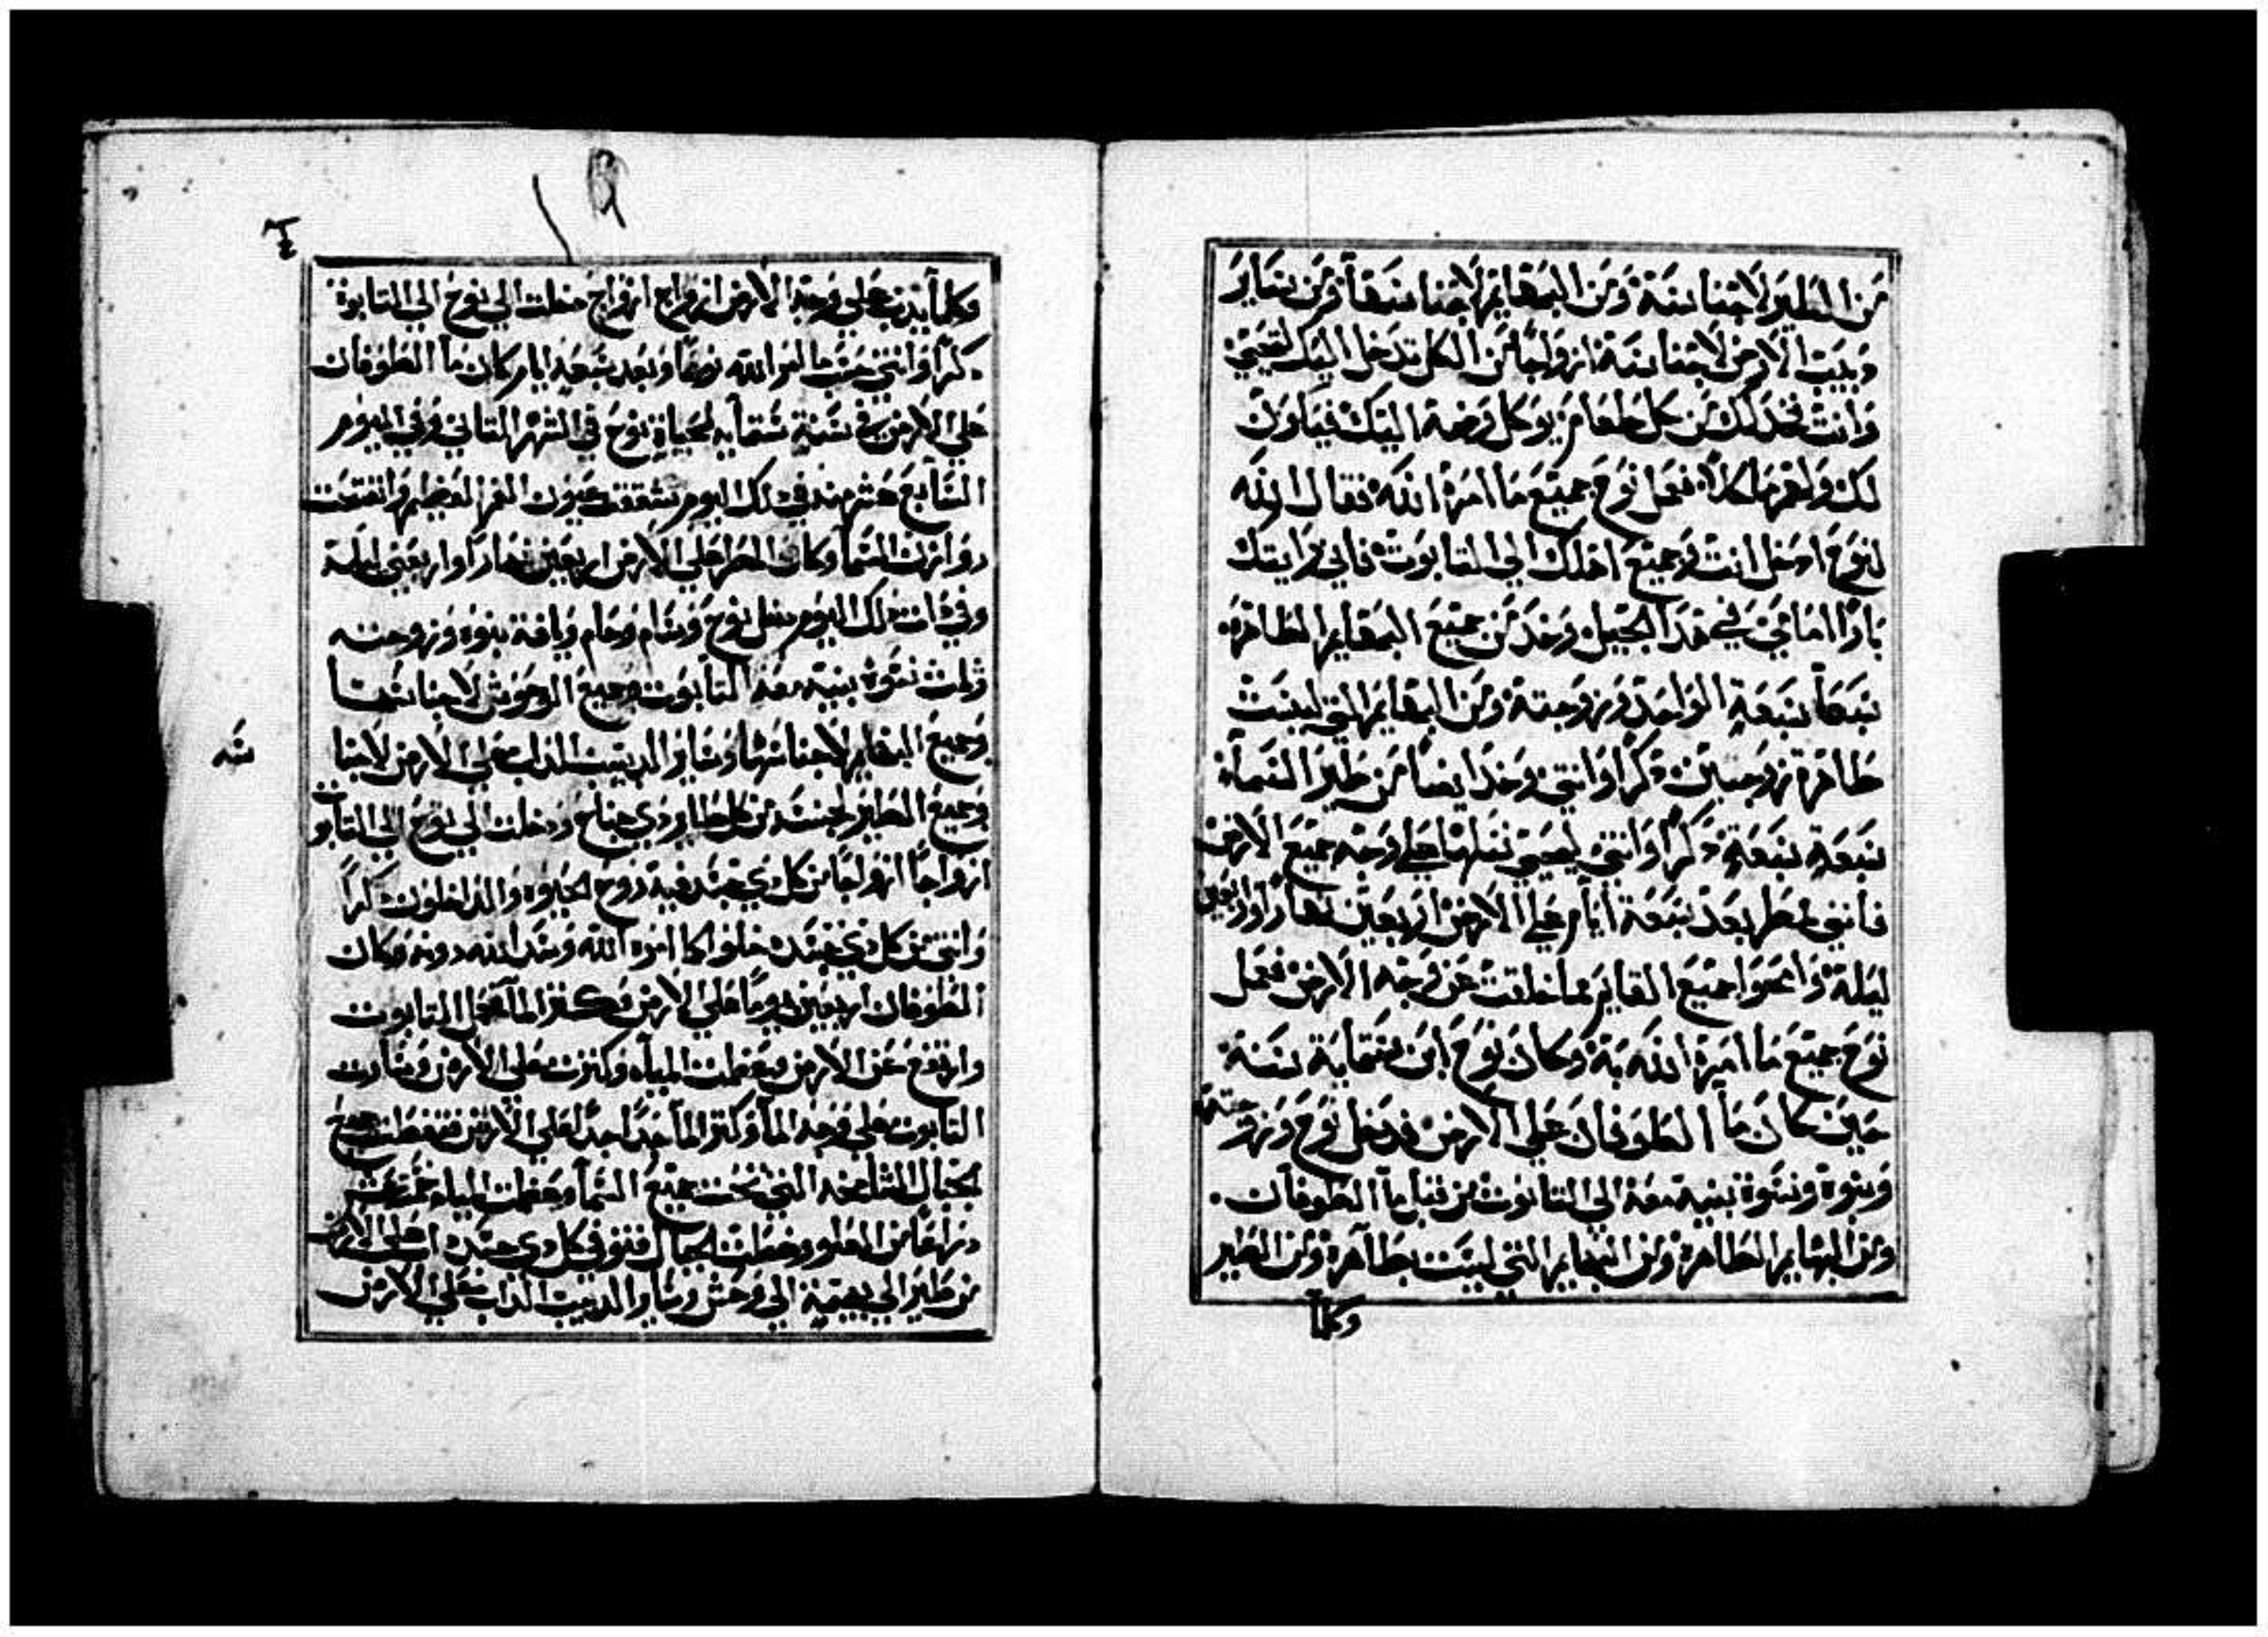 من الطير لاجناسه ومن البهايم لاجناسها ومن ساير
دبيب الارض لاجناسه ازواجا من الكل تدخل اليك لتحيي
وانت فخد لك من كل طعام يوكل وضمه اليك فيكون
لك ولهم ماكلا فعمل نوح جميع ما امره الله فقال الله
لنوح ادخل انت وجميع اهلك الي التابوت فاني رايتك
بارا امامي في هدا الجيل وخد من جميع البهايم الطاهره
سبعا سبعة الواحد وزوجته ومن البهايم التي ليست
طاهرة زوجين دكرا وانتي وخد ايضا من طير السماء
سبعة سبعة دكرا وانتي ليحيي نسلها علي وجه جميع الارض
فانني ممطر بعد سبعة ايام علي الارض اربعين نهارا واربعين
ليلة وامحوا جميع القايم مما خلقت عن وجه الارض فعمل
نوح جميع ما امره الله به وكان نوح ابن ستماية سنة
حين كان ما الطوفان علي الارض فدخل نوح وزوجته
وبنوه ونسوة بنيه معه الي التابوت من قبل ما الطوفان
ومن البهايم الطاهرة ومن البهايم التي ليست بطاهرة ومن الطير
وكلما
١٩
وكلما يدب علي وجه الارض ازواج ازواج دخلت الي نوح الي التابوة
دكرا وانتي حسب ما امر الله نوحا وبعد سبعة ايام كان ما الطوفان
علي الارض في سنة ستمايه لحياة نوح في الشهر التاني وفي اليوم
السابع عشر منه في دلك اليوم تشققت عيون الغمر العظيم وانفتحت
روازن السما وكان المطر علي الارض اربعين نهارا واربعين ليلة
وفي دات دلك اليوم دخل نوح وسام وحام ويافت بنوه وزوجته
وثلث نسوة بنيه معه التابوت وجميع الوحوش لاجناسها
وجميع البهايم لاجناسها وساير الدبيب الداب علي الارض لاجنا
سه
وجميع الطير لجنسه من كل طاير دي جناح ودخلت الي نوح الي التابوت
ازواجا ازواجا من كل دي جسد فيه روح الحيوه والداخلون دكرا
وانتي من كل دي جسد دخلوا كما امره الله وسد الله دونه وكان
الطوفان اربعين يوما علي الارض وكتر الما فحمل التابوت
وارتفع عن الارض وعظمت المياه وكترت علي الارض وسارت
التابوت علي وجه الما وكتر الما جدا جدا علي الارض فتغطت جميع
الجبال الشامخه التي تحت جميع السما وعظمت المياه خمسة عشر
دراعا من العلو وغطت الجبال فتوفي كل دي جسد داب علي الارض
من طير الي بهيمة الي وحش وساير الدبيب الداب علي الارض